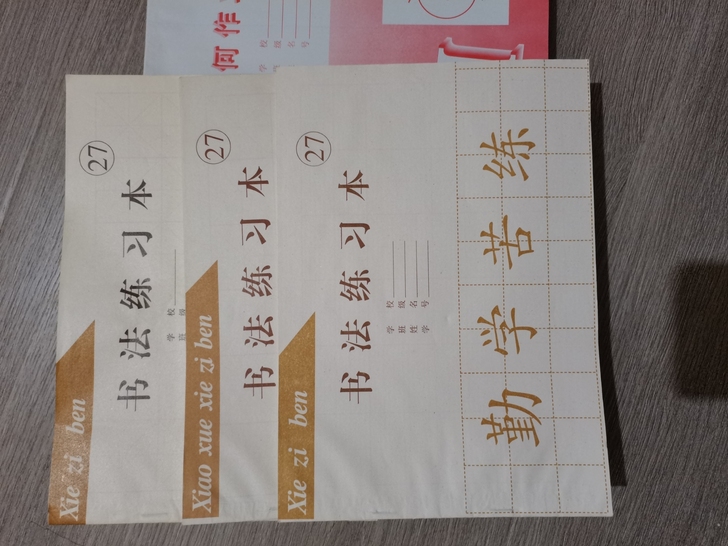 Xie zi ben
27
书法练习本
学校
班级
Xiao xue xie zi ben
27
书法练习本
Xie zi ben
27
书法练习本
学校
班级
姓名
学号
勤学苦练
何作
学校
级
名
号